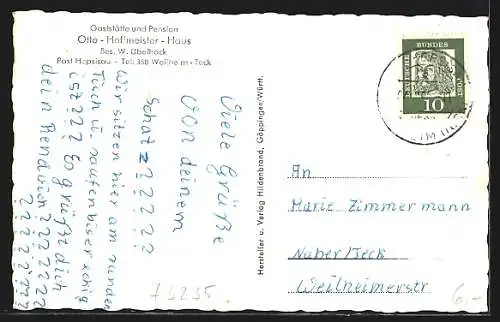 Gaststätte und Pension
Otto - Hoffmeister - Haus
Bes. W. Übelhack
Post Hepsisau - Tel: 350 Weilheim - Teck
Viele Grüße
von deinem
Schatz ? ? ? ? ?
Wir sitzen hier am runden
Tisch u. saufen bis er eckig
ist ? ? ? Es grüßt dich
dein ? ? ? ? ? ? ?
? ? ? ? ? ? ? ? ?
Hersteller u. Verlag Hildenbrand, Göppingen/Württ.
DEUTSCHE BUNDESPOST
10
An
Marie Zimmermann
Naber/Teck
Weilheimerstr
73235
6,-